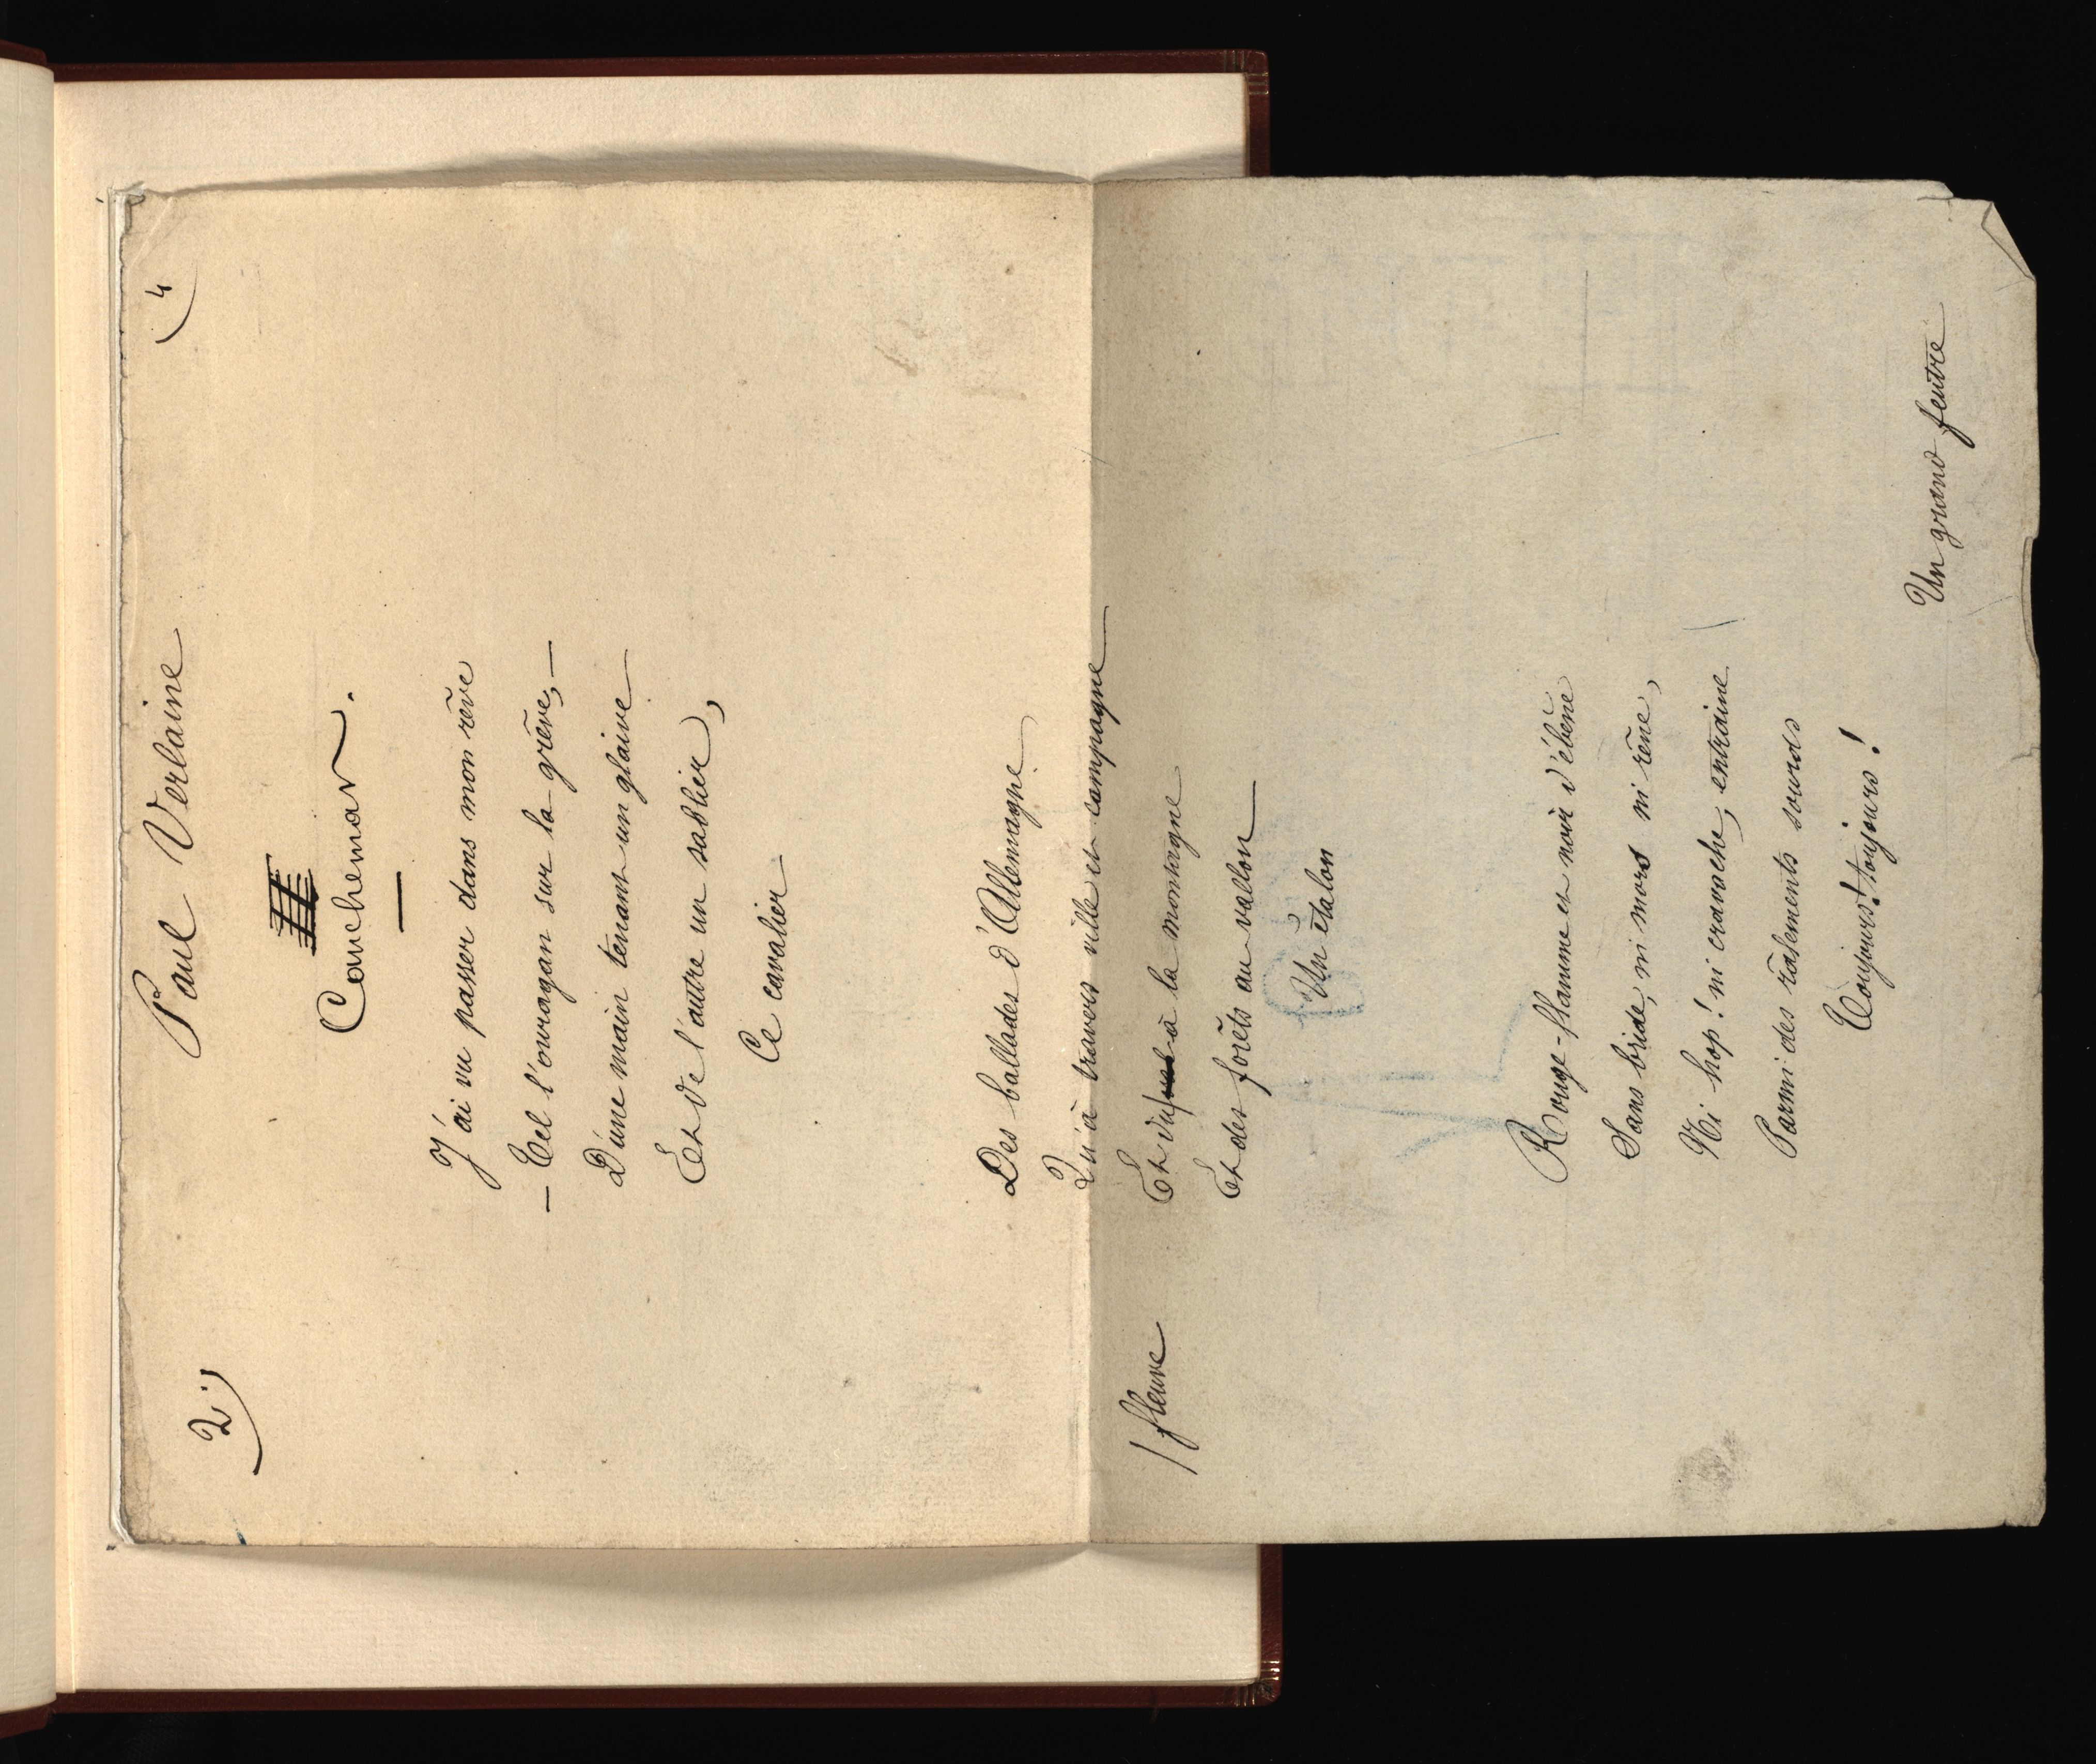 2.)
Paul Verlaine
(4
Cauchemar.
J'ai vu passer dans mon rêve
— Tel l'ouragan sur la grève, —
D'une main tenant un glaive
Et de l'autre un sablier,
Ce cavalier
Des ballades d'Allemagne
Qu'à travers ville et campagne
/ fleuve
Et du à la montagne
Et des forêts au vallon
Un étalon
Rouge-flamme et noir d'ébène
Sans bride, ni mors ni rène,
Ni hop! ni cravache, entraine
Parmi des râlements sourds
Toujours! toujours!
Un grand feutre